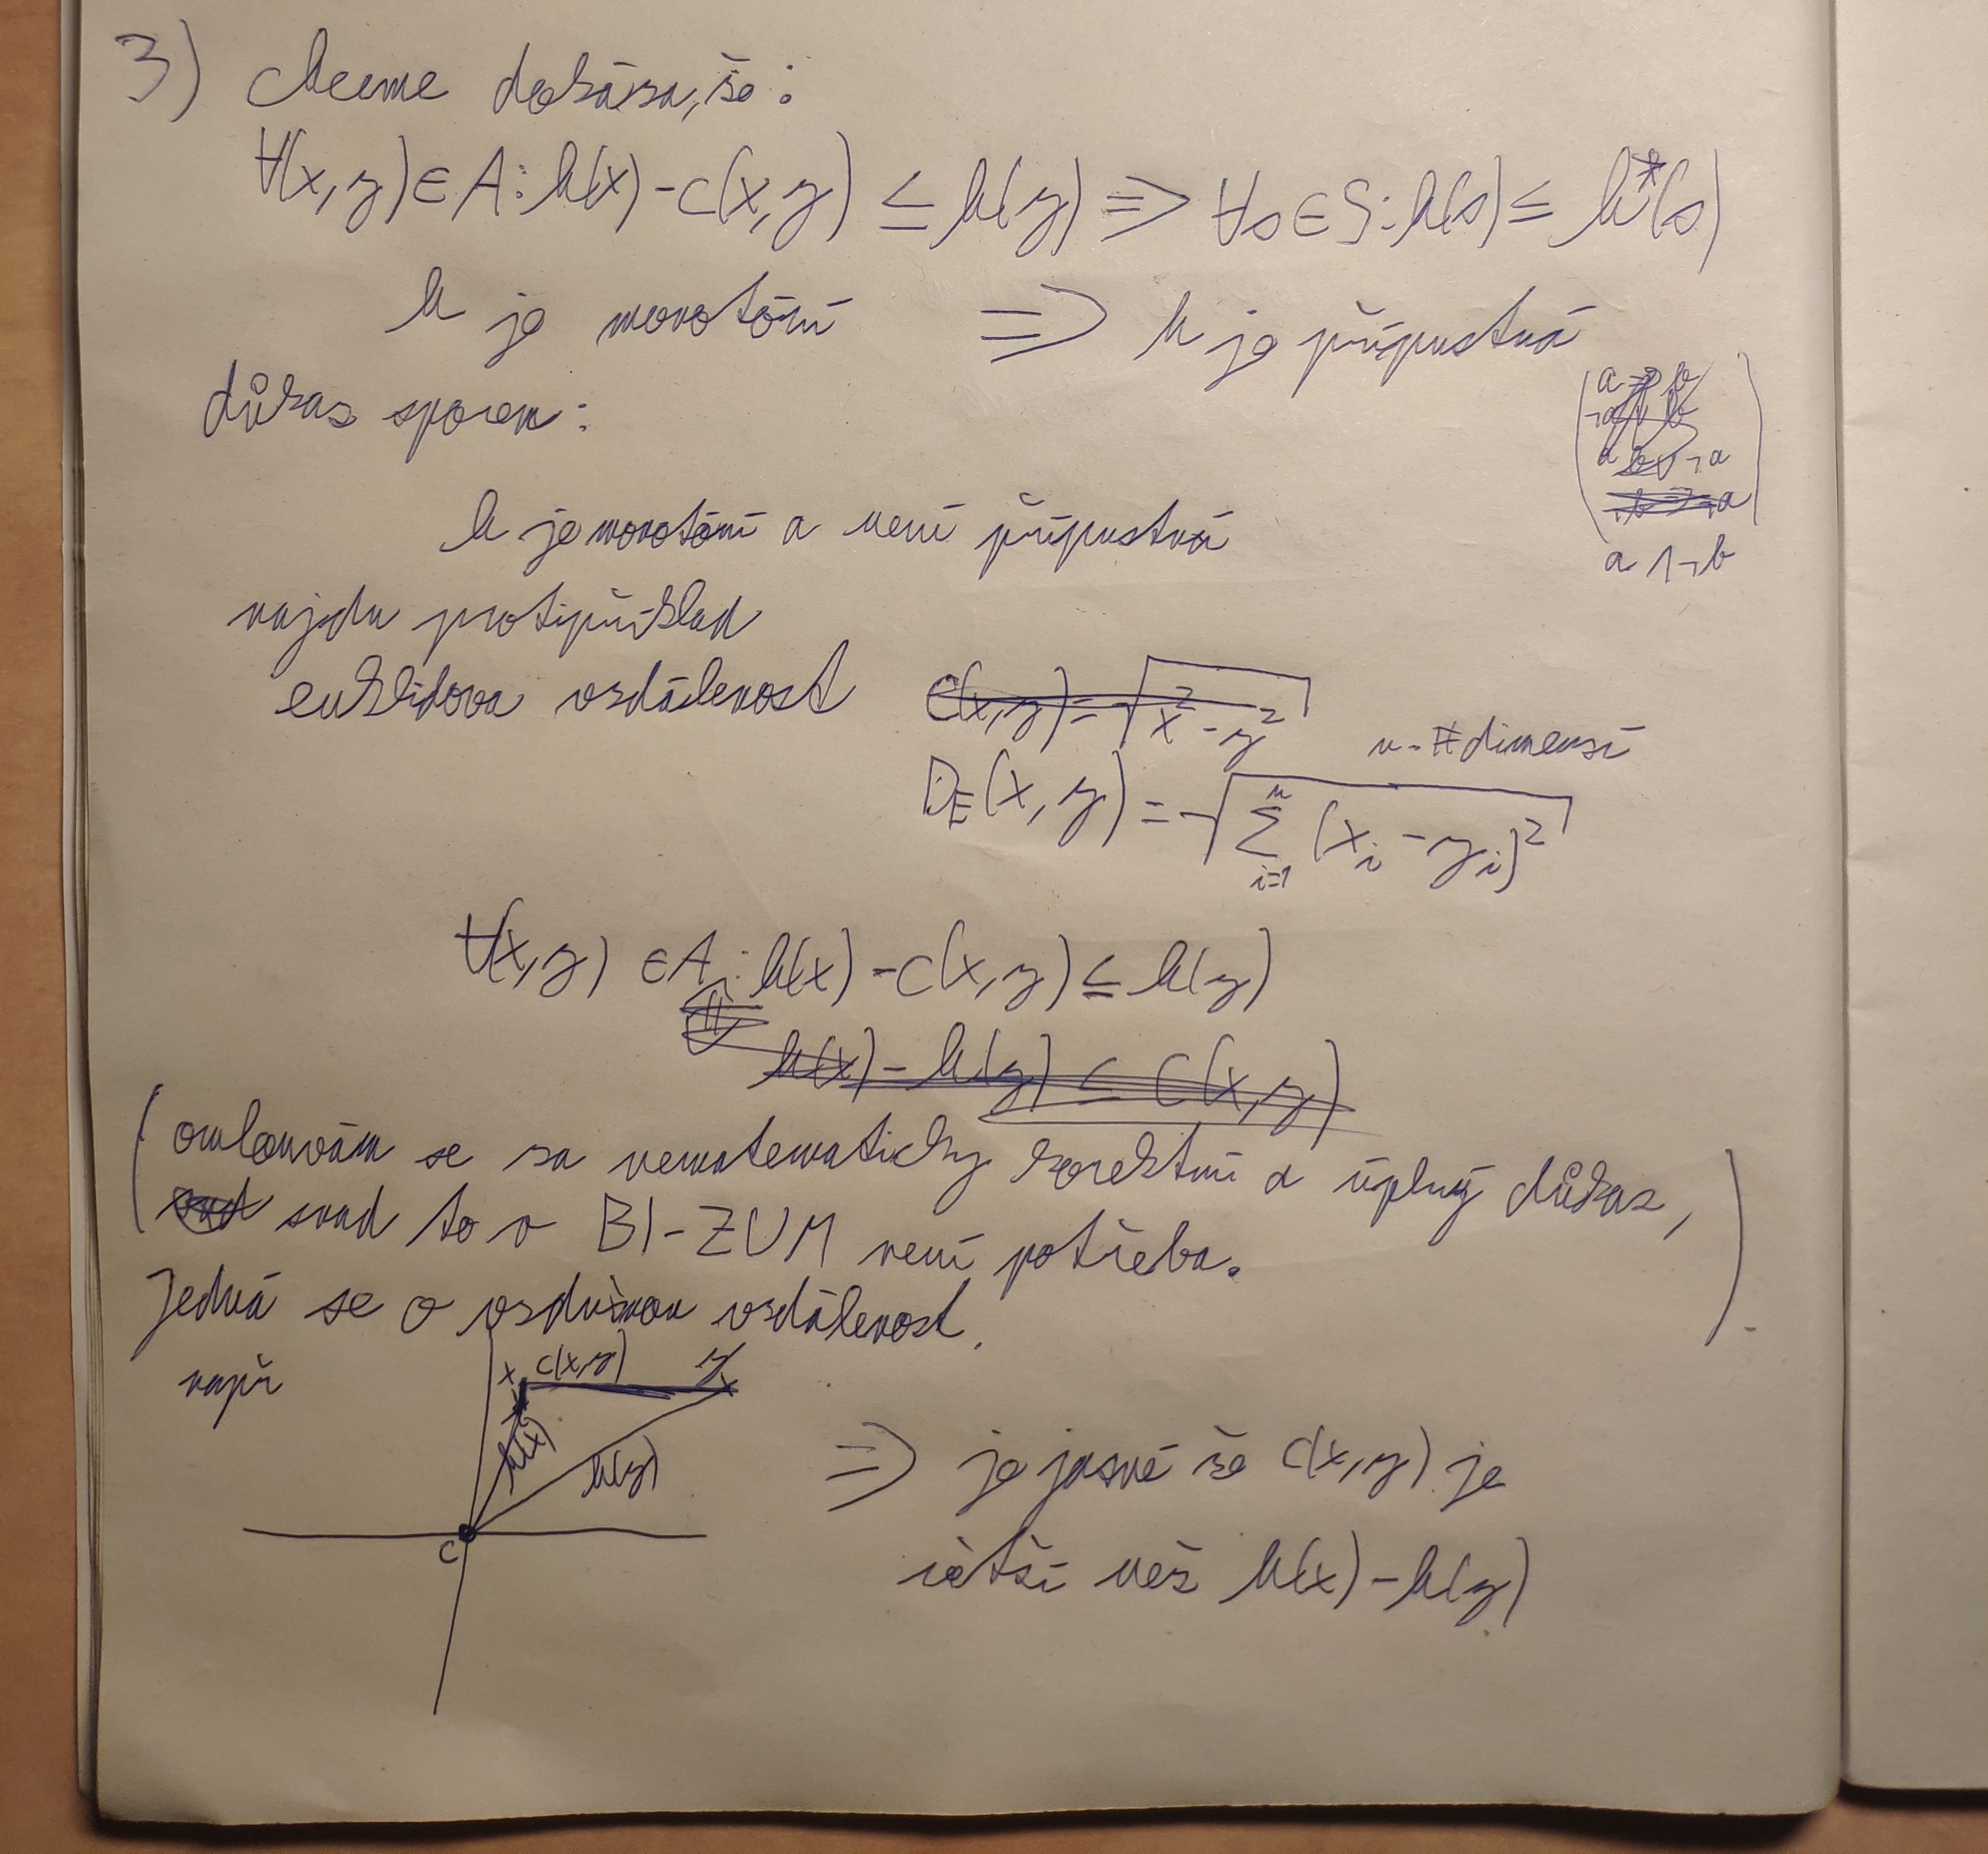 3) chceme dokázat, že:
∀(x,y) ∈ A: h(x) - c(x,y) ≤ h(y) => ∀s ∈ S: h(s) ≤ h*(s)
h je monotónní => h je přípustná
důkaz sporem:
a ∧ ¬b
h je monotónní a není přípustná
najdu protipříklad
euklidova vzdálenost
c(x,y) = √x² - y²
n - # dimensí
D_E(x,y) = √∑_{i=1}^{n} (x_i - y_i)²
∀(x,y) ∈ A: h(x) - c(x,y) ≤ h(y)
h(x) - h(y) ≤ c(x,y)
(omlouvám se za nematematicky korektní a úplný důkaz,
snad to v BI-ZUM není potřeba.)
Jedná se o vzdušnou vzdálenost.
např
x c(x,y) y
h(x)
h(y)
C
=> je jasné že c(x,y) je
větší než h(x) - h(y)